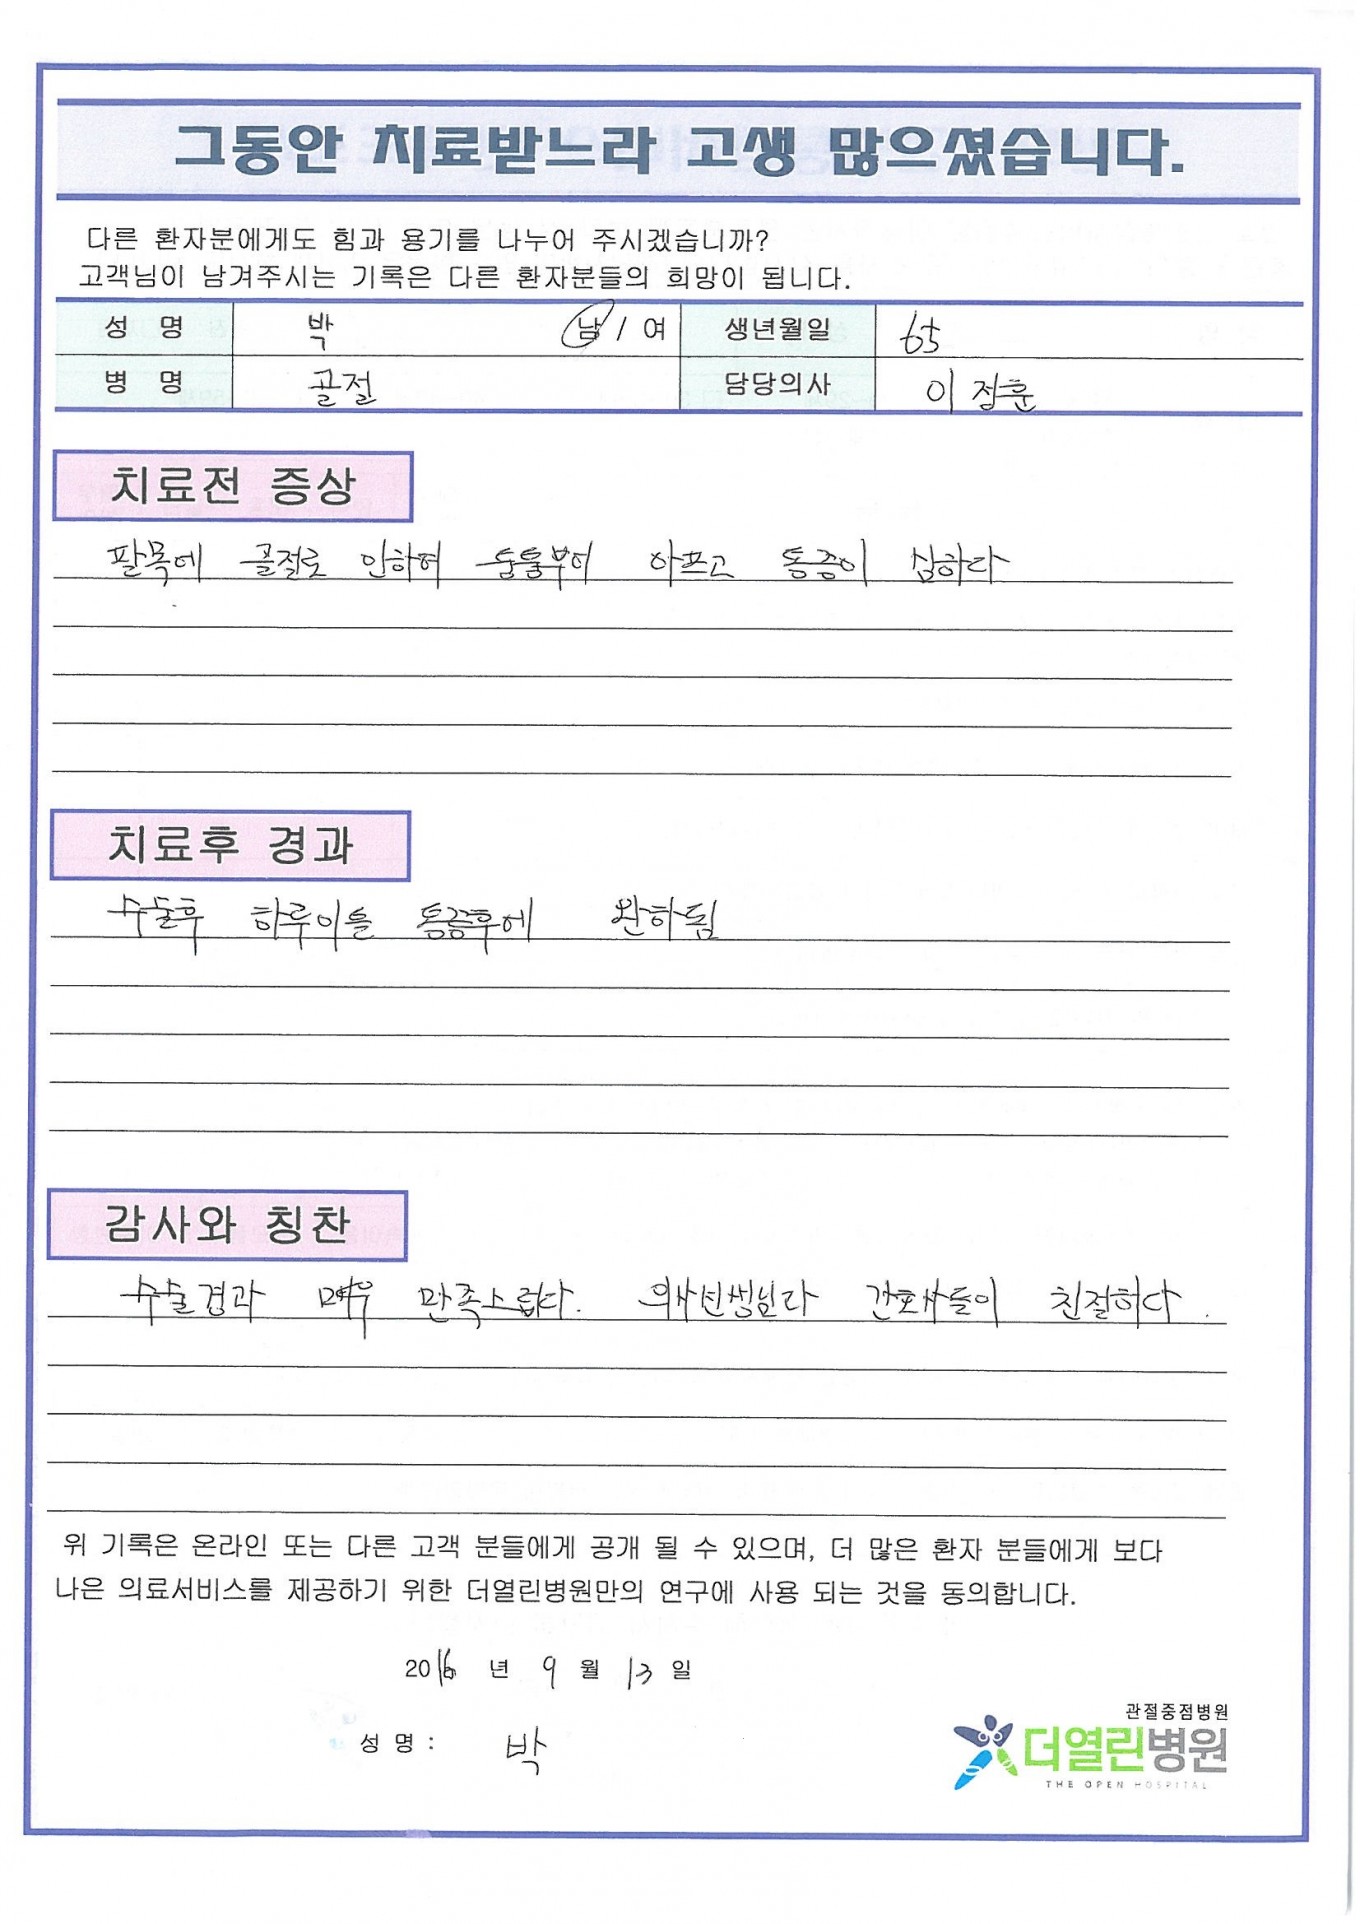 그동안 치료받느라 고생 많으셨습니다.
다른 환자분에게도 힘과 용기를 나누어 주시겠습니까?
고객님이 남겨주시는 기록은 다른 환자분들의 희망이 됩니다.
성 명 박 남 / 여 생년월일 65
병 명 골절 담당의사 이정훈
치료전 증상
팔목에 골절로 인하여 퉁퉁부어 아프고 통증이 심하다
치료후 경과
수술후 하루이틀 통증후에 완하됨
감사와 칭찬
수술경과 매우 만족스럽다. 의사선생님과 간호사들이 친절하다.
위 기록은 온라인 또는 다른 고객 분들에게 공개 될 수 있으며, 더 많은 환자 분들에게 보다
나은 의료서비스를 제공하기 위한 더열린병원만의 연구에 사용 되는 것을 동의합니다.
2016 년 9 월 13 일
관절중점병원
성 명 : 박
더열린병원
THE OPEN HOSPITAL